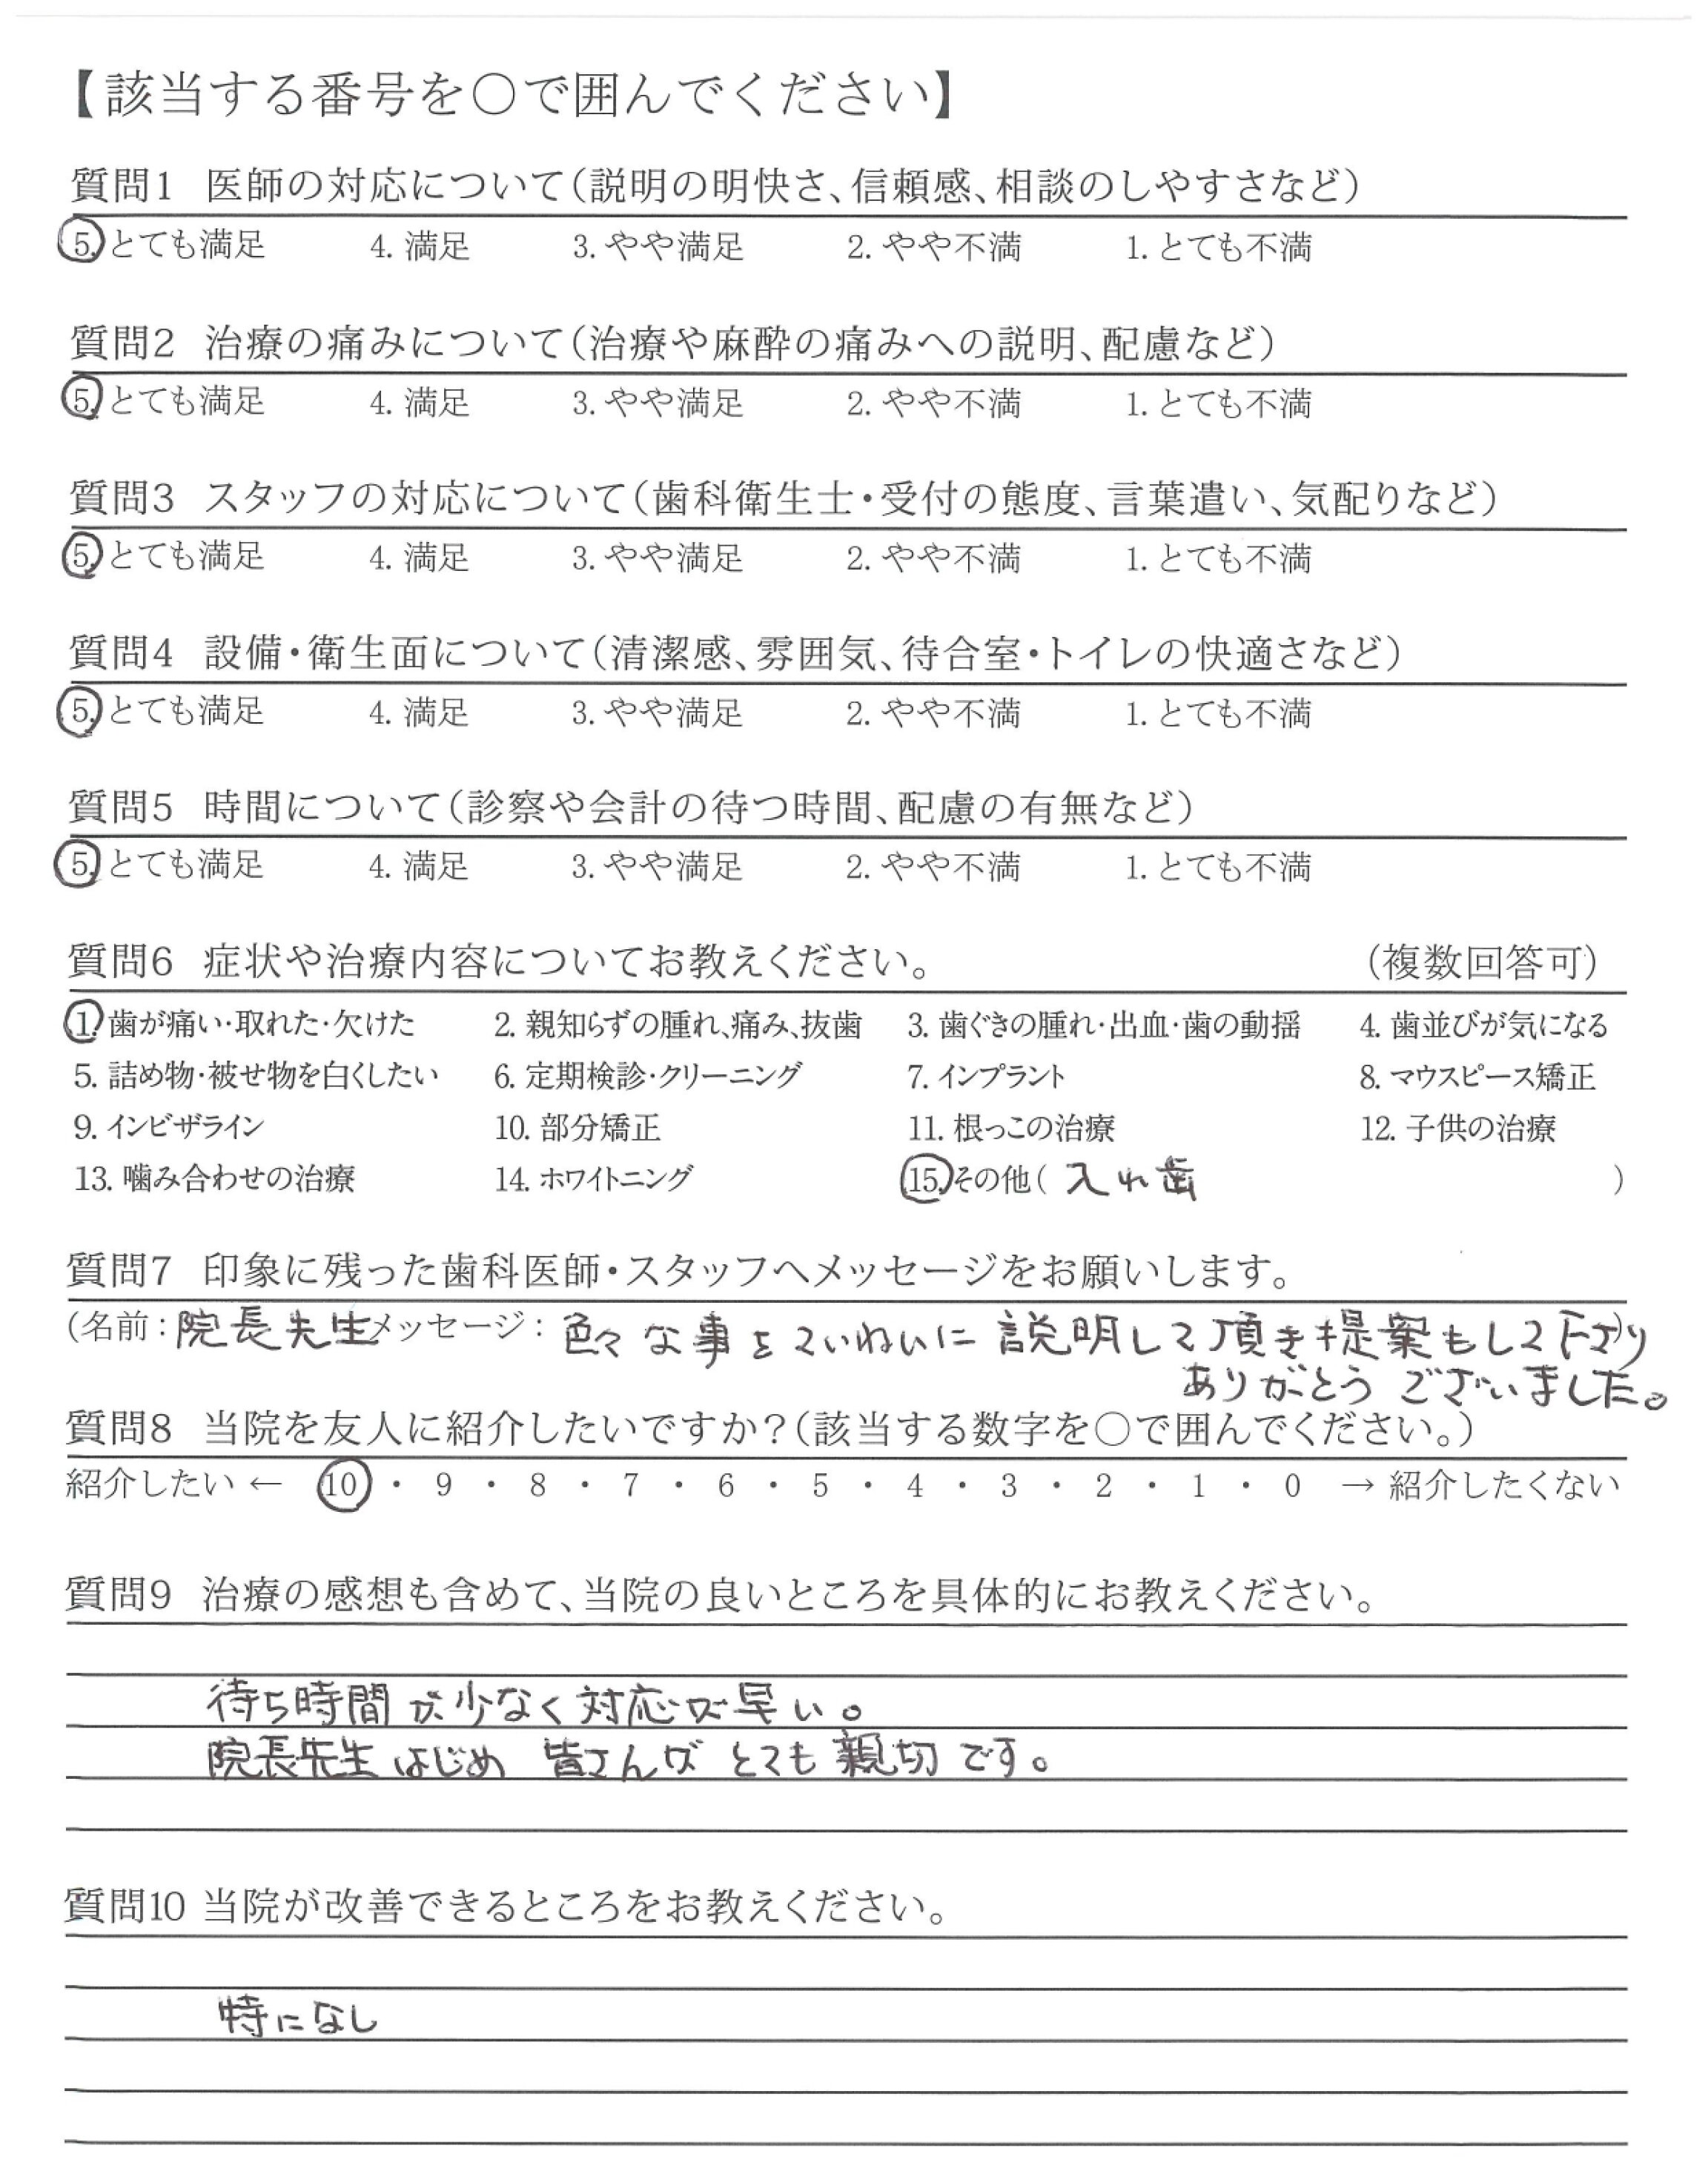 【該当する番号を〇で囲んでください】
質問1 医師の対応について（説明の明快さ、信頼感、相談のしやすさなど）
5. とても満足 4. 満足 3. やや満足 2. やや不満 1. とても不満
質問2 治療の痛みについて（治療や麻酔の痛みへの説明、配慮など）
5. とても満足 4. 満足 3. やや満足 2. やや不満 1. とても不満
質問3 スタッフの対応について（歯科衛生士・受付の態度、言葉遣い、気配りなど）
5. とても満足 4. 満足 3. やや満足 2. やや不満 1. とても不満
質問4 設備・衛生面について（清潔感、雰囲気、待合室・トイレの快適さなど）
5. とても満足 4. 満足 3. やや満足 2. やや不満 1. とても不満
質問5 時間について（診察や会計の待つ時間、配慮の有無など）
5. とても満足 4. 満足 3. やや満足 2. やや不満 1. とても不満
質問6 症状や治療内容についてお教えください。 （複数回答可）
1. 歯が痛い・取れた・欠けた 2. 親知らずの腫れ、痛み、抜歯 3. 歯ぐきの腫れ・出血・歯の動揺 4. 歯並びが気になる
5. 詰め物・被せ物を白くしたい 6. 定期検診・クリーニング 7. インプラント 8. マウスピース矯正
9. インビザライン 10. 部分矯正 11. 根っこの治療 12. 子供の治療
13. 噛み合わせの治療 14. ホワイトニング 15. その他（ 入れ歯 ）
質問7 印象に残った歯科医師・スタッフへメッセージをお願いします。
（名前：院長先生 メッセージ：色々な事をていねいに説明して頂き提案もして下さり）
ありがとうございました。
質問8 当院を友人に紹介したいですか？（該当する数字を〇で囲んでください。）
紹介したい ← 10 ・ 9 ・ 8 ・ 7 ・ 6 ・ 5 ・ 4 ・ 3 ・ 2 ・ 1 ・ 0 → 紹介したくない
質問9 治療の感想も含めて、当院の良いところを具体的にお教えください。
待ち時間が少なく対応が早い。
院長先生はじめ 皆さんが とても親切です。
質問10 当院が改善できるところをお教えください。
特になし